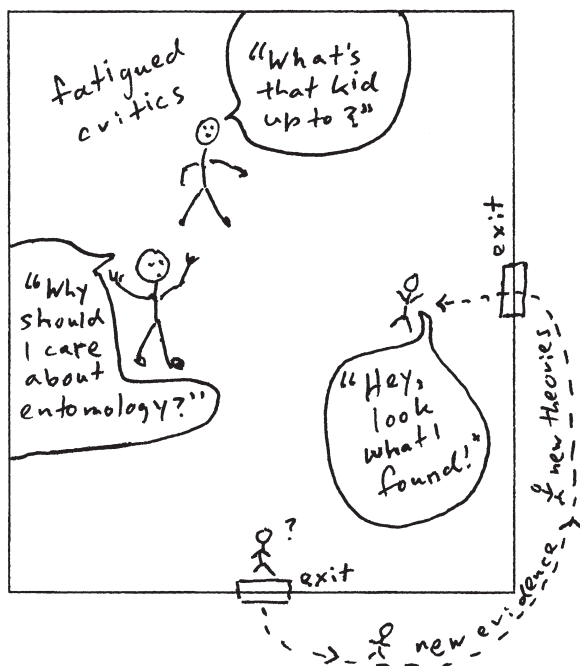 fatigued
critics
"What's
that kid
up to?"
exit
"Why
should
I care
about
entomology?"
"Hey,
look
what I
found!"
?
exit
new evidence
new theories